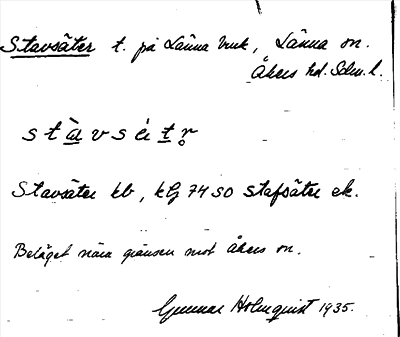 Stavsäter t. på Länna bruk, Länna sn.
Åkers hd. Sdm. l.
s t à v s é t r
Stavsäter kb, kG 74 SO Stafsäter ek.
Beläget nära gränsen mot Åkers sn.
Gunnar Holmquist 1935.